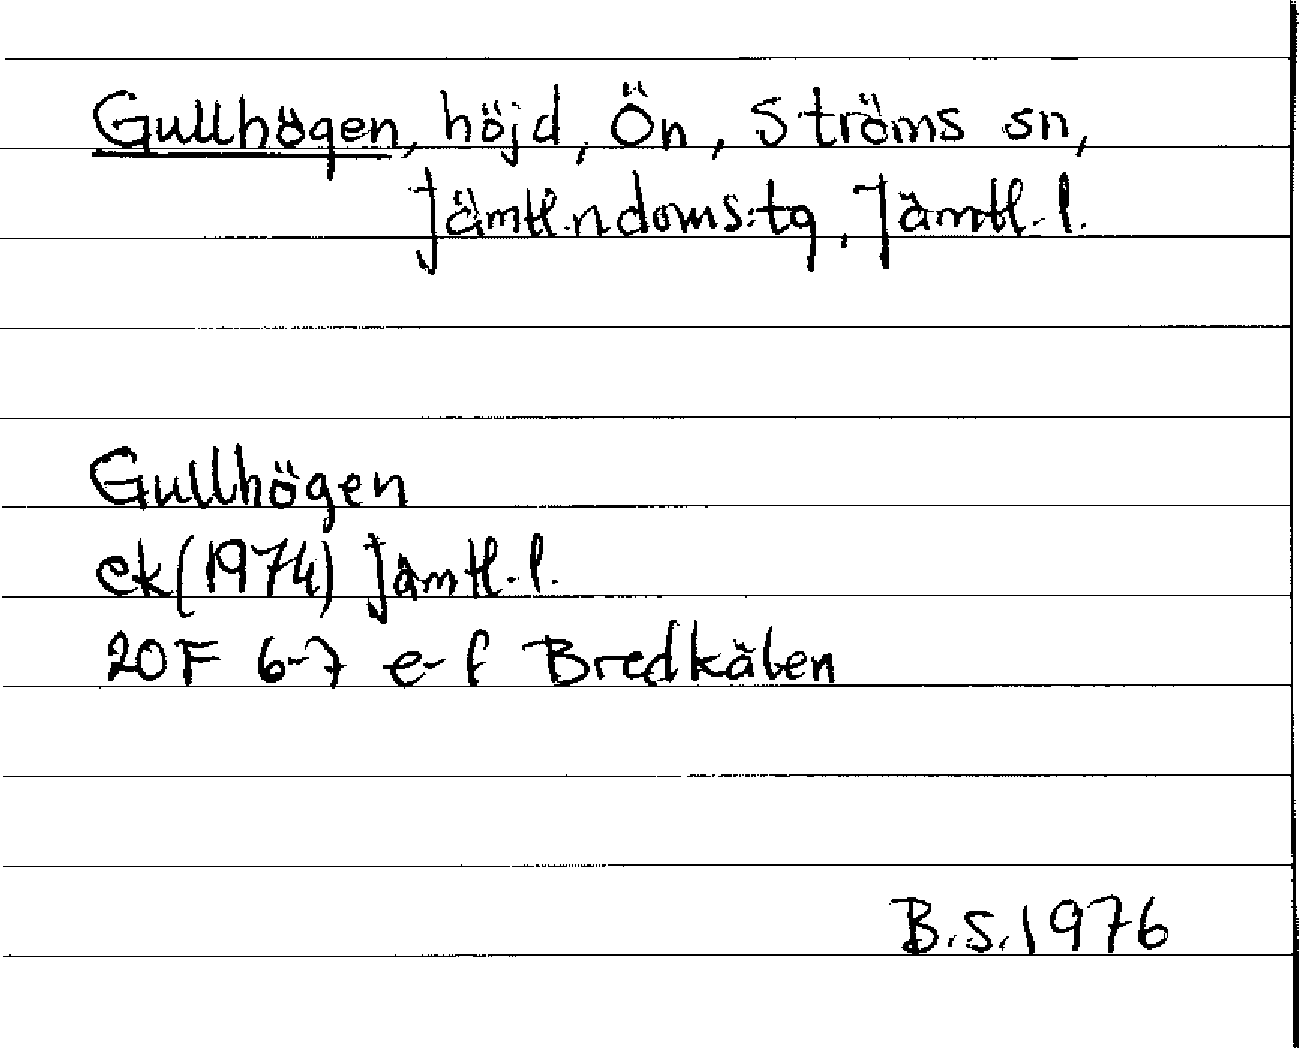 Gullhögen, höjd, Ön, Ströms sn,
Jämtl. n doms:tg, Jämtl. l.
Gullhögen
ek (1974) Jämtl. l.
20F 6-7 e-f Bredkälen
B.S. 1976